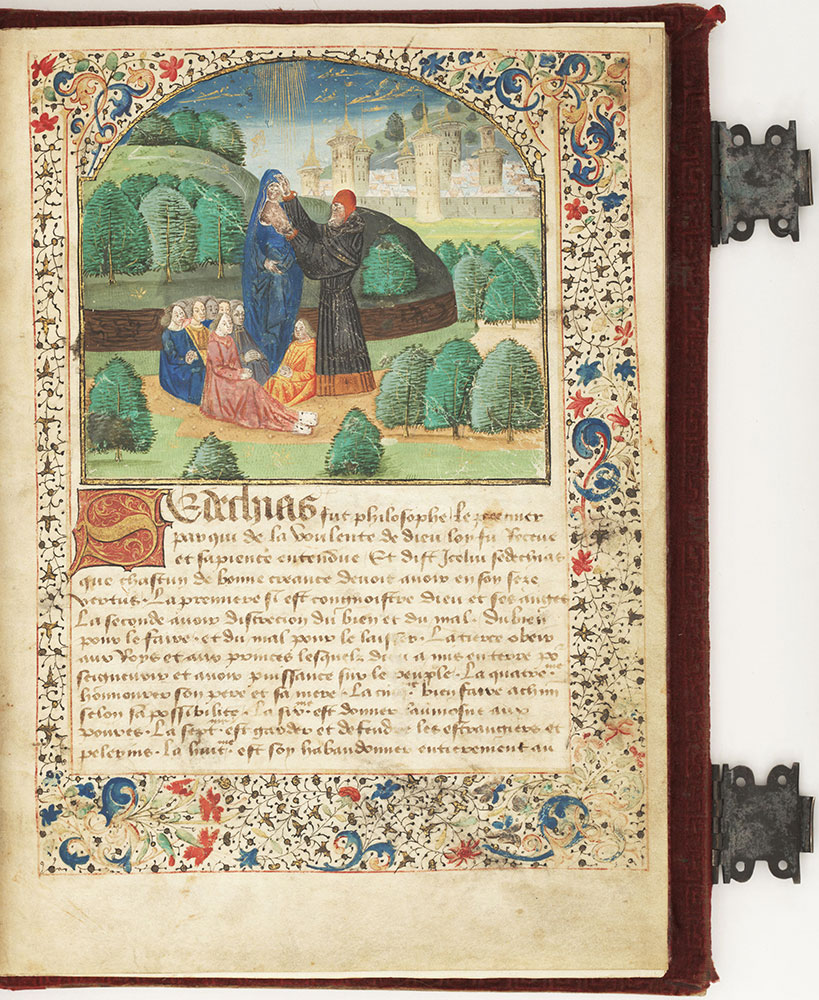 Sedechias fut philosophe le premier
par qui de la voulente de dieu loy fu receue
et sapience entendue Et dist Icelui sedechias
que chascun de bonne creance devoit avoir en soy seze
vertus. La premiere si est congnoistre dieu et ses anges
La seconde avoir discrecion du bien et du mal. Du bien
pour le faire. et du mal pour le laisser. La tierce obeir
aux Roys et aux princes lesquelz dieu a mis en terre po
seigneurir et avoir puissance sur le peuple. La quatre.me
honnourer son pere et sa mere. La cinq.me bien faire a chun
selon sa possibilite. La six.me est donner laumosne aux
povres. La sept.me est garder et defendre les estrangiers et
pelerins. La huit.me est soy habandonner entierement au